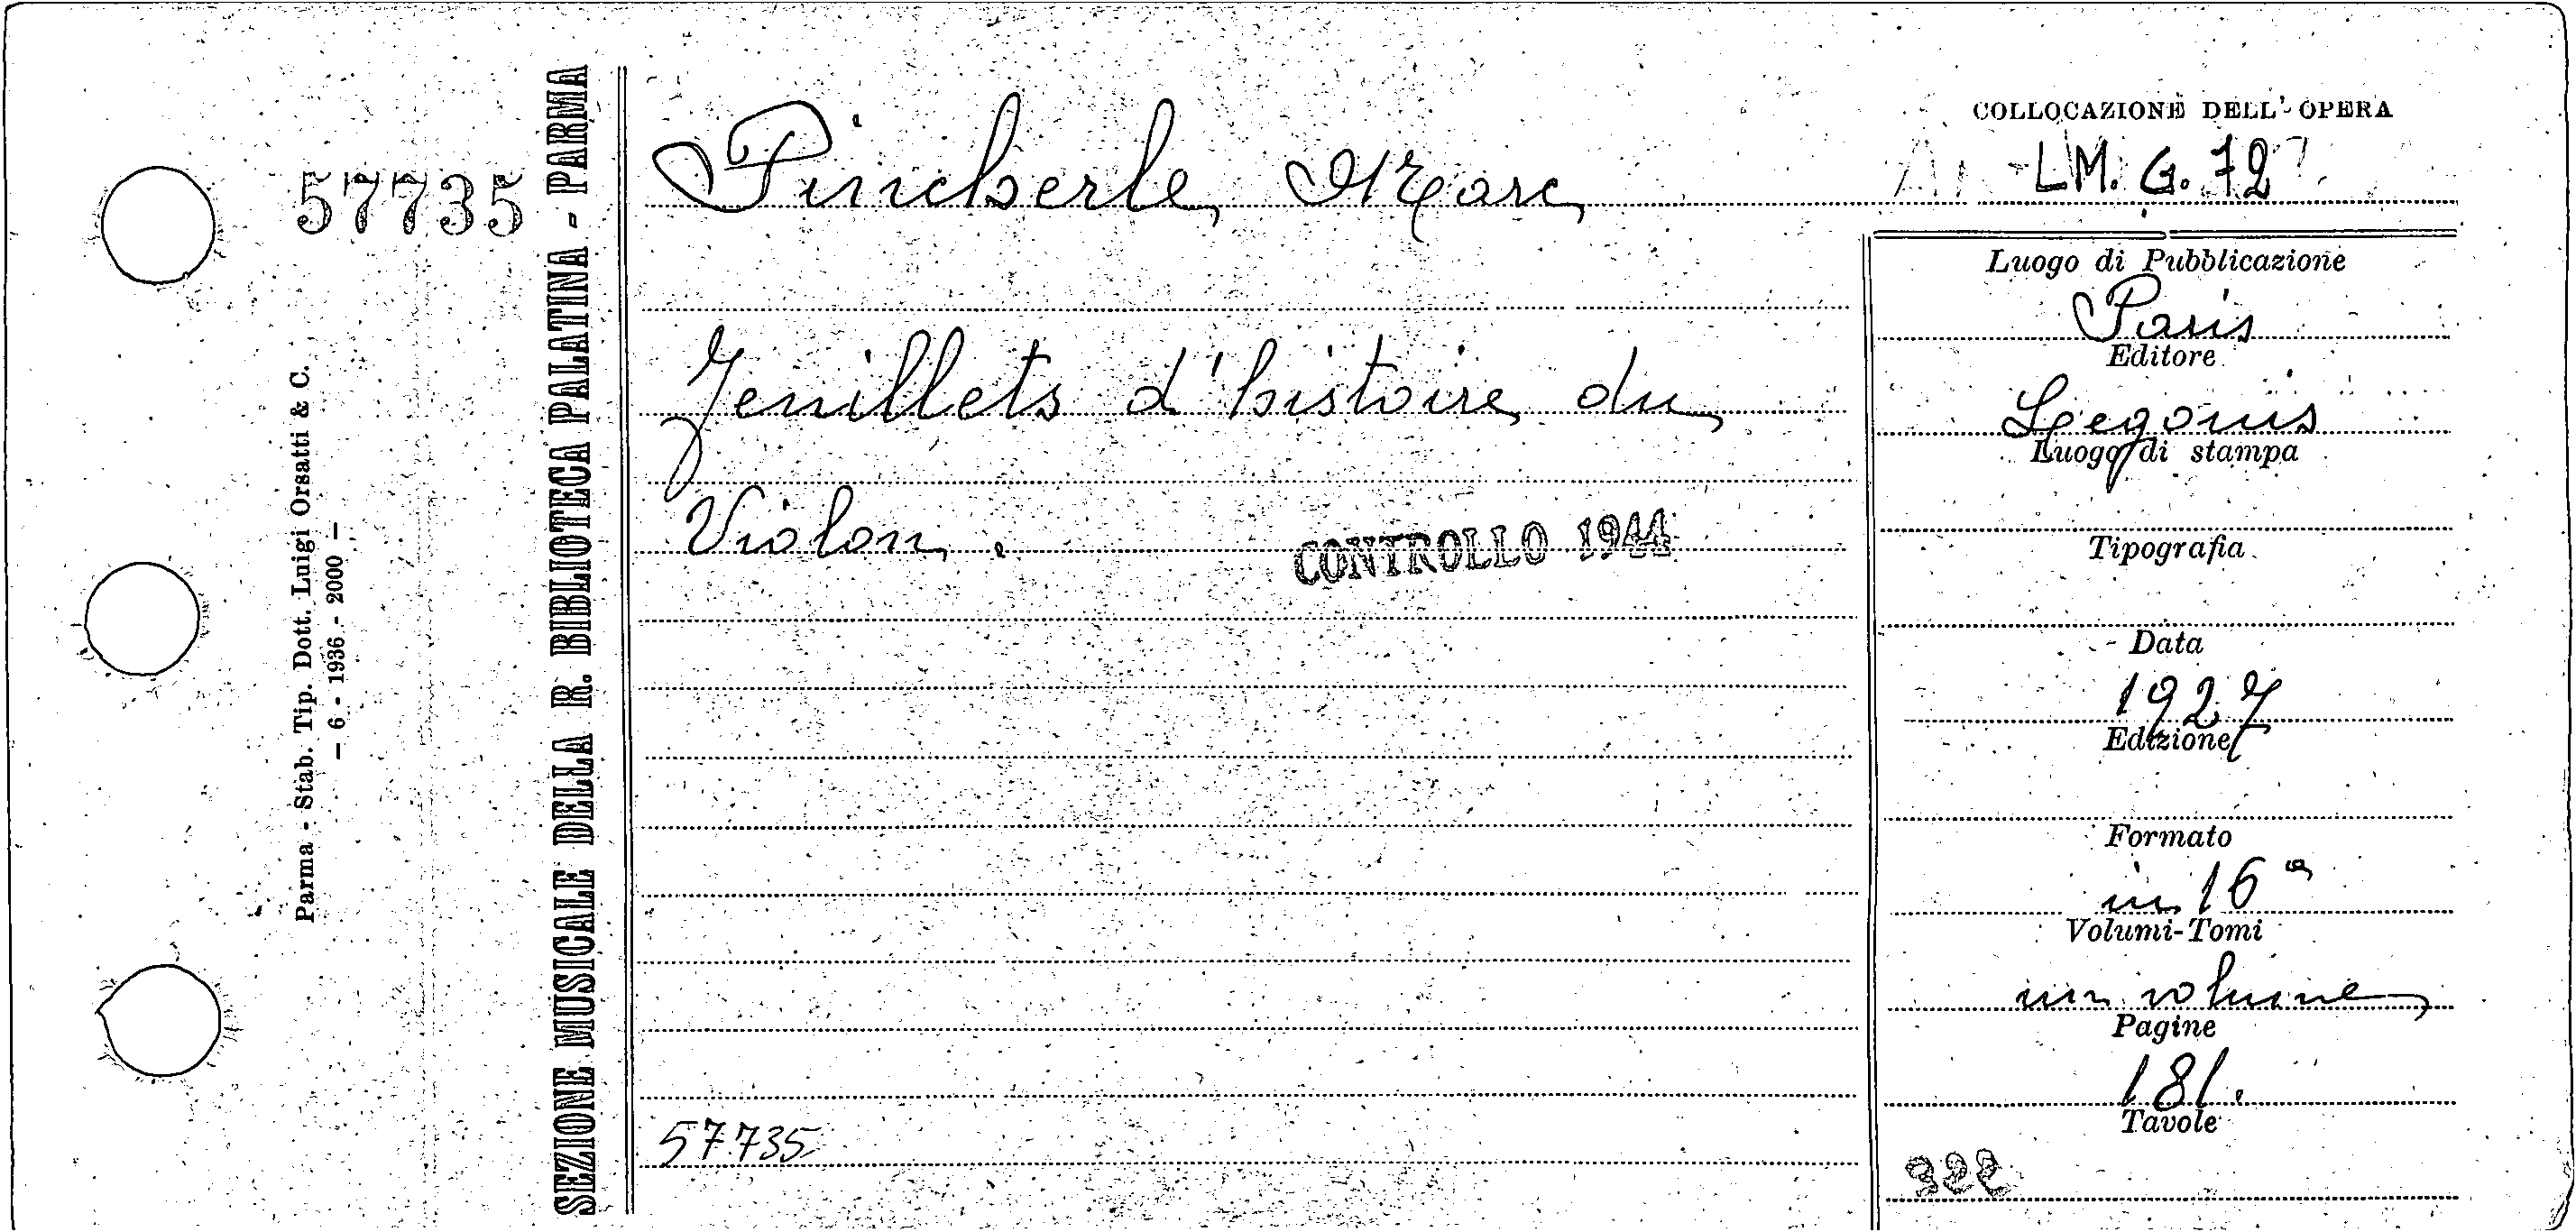 57735
Parma - Stab. Tip. Dott. Luigi Orsatti & C.
— 6 - 1936 - 2000 —
SEZIONE MUSICALE DELLA R. BIBLIOTECA PALATINA - PARMA
Pincherle Marc
Feuillets d'histoire du
Violon.
CONTROLLO 1944
57735
COLLOCAZIONE DELL'OPERA
LM. G. 72
Luogo di Pubblicazione
Paris
Editore
Legouis
Luogo di stampa
Tipografia
Data
1927
Edizione
Formato
in 16°
Volumi-Tomi
un volume
Pagine
181.
Tavole
322